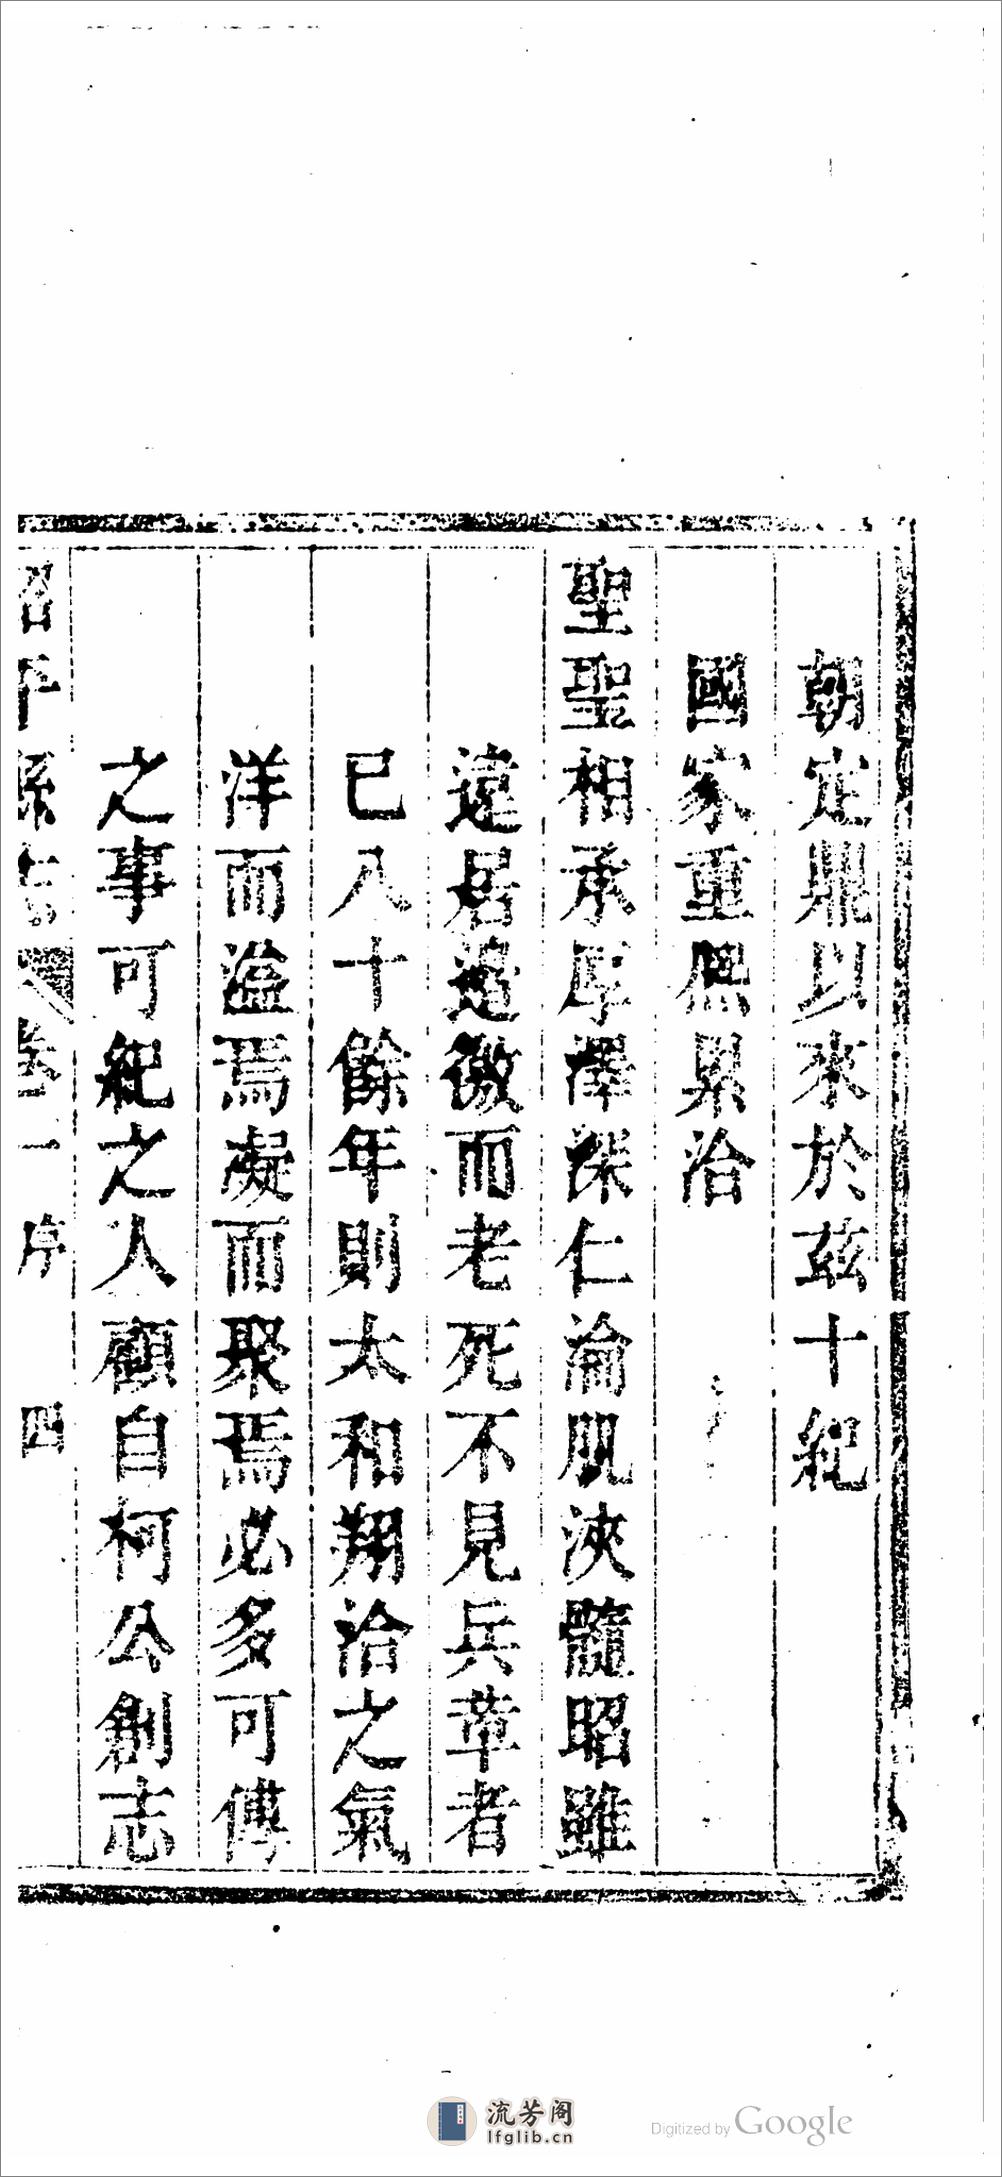 朝定鼎以來於茲十紀
國家重熙累洽
聖聖相承厚澤深仁淪肌浹髓昭雖
遠居邉徼而老死不見兵革者
已八十餘年則太和翔洽之氣
洋而溢焉凝而聚焉必多可傳
之事可紀之人顧自柯公創志
昭平縣志 卷一 序 四
流芳阁
lfglib.cn
Digitized by Google